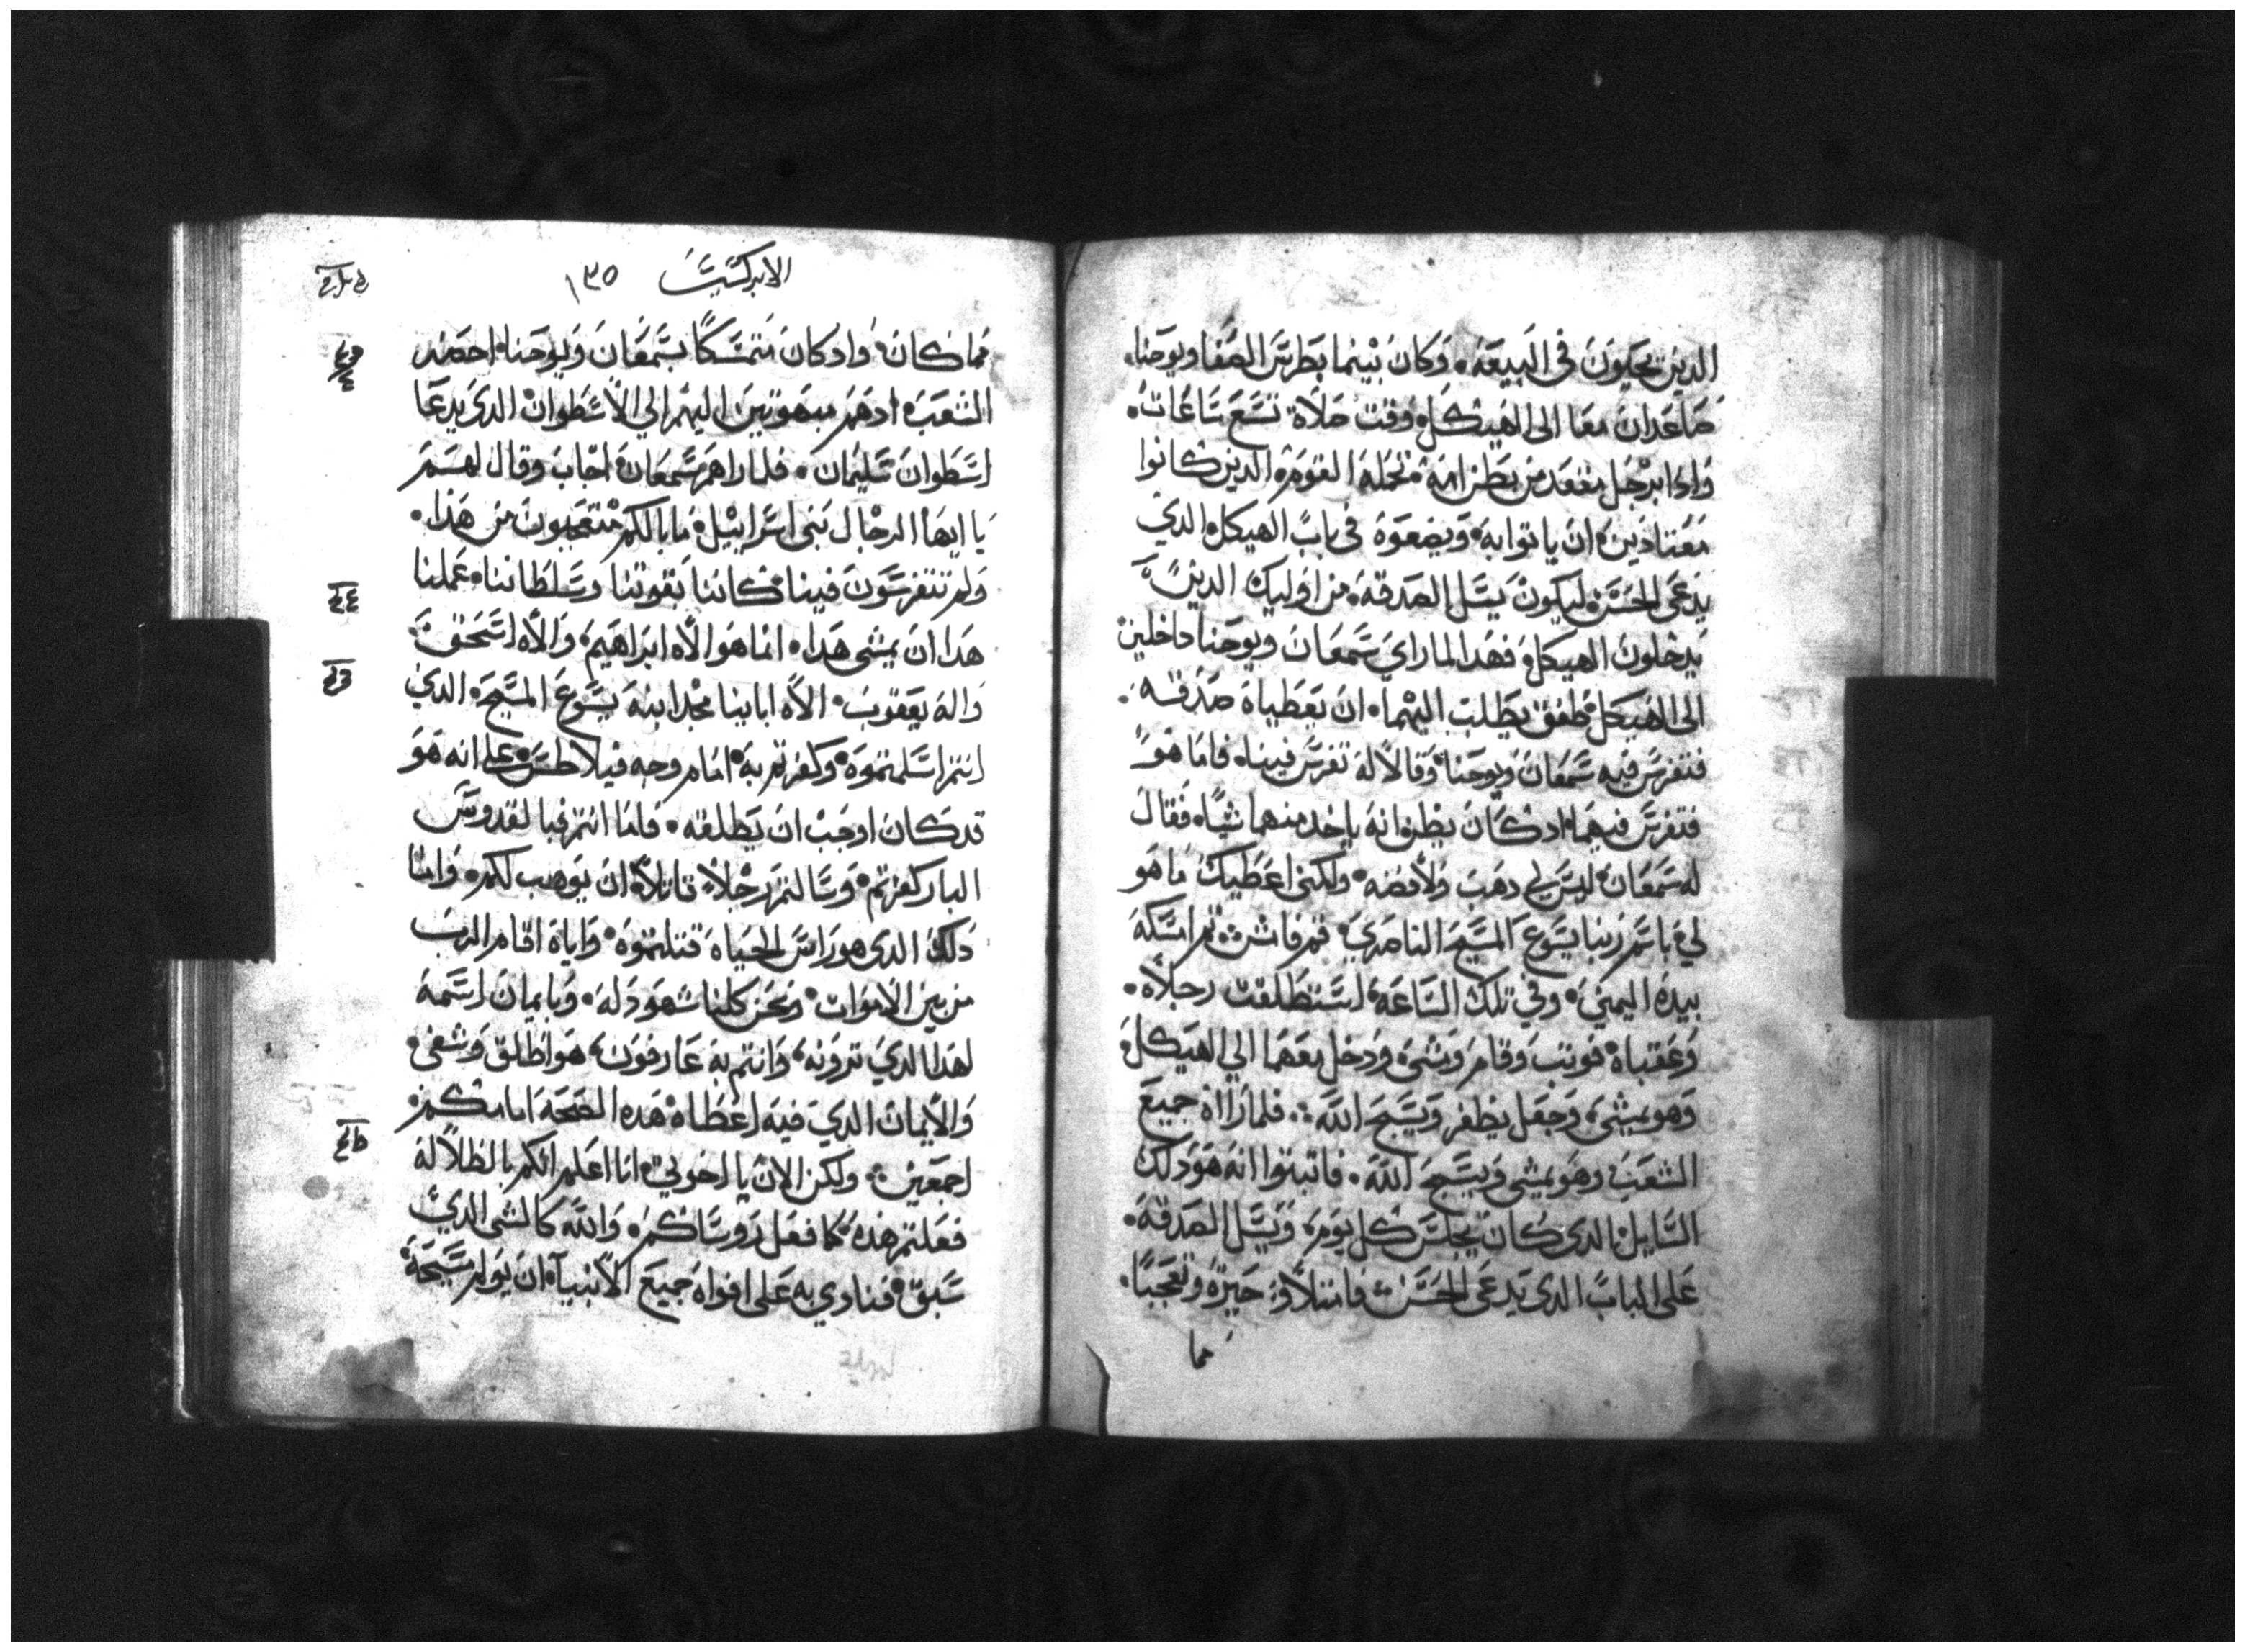 الدين يحيون في البيعة. وكان بينما بطرس الصفا ويوحنا.
صاعدان معا الى الهيكل وقت صلاة تسع ساعات.
واذا برجل مقعد من بطن امه تحمله القوم الدين كانوا
معتادين ان ياتوا به ويضعوه في باب الهيكل الدي
يدعى الحسن ليكون يسل الصدقة من اوليك الدين
يدخلون الهيكل فهدا لما راي سمعان ويوحنا داخلين
الى الهيكل طفق يطلب اليهما ان يعطياه صدقة.
فتفرس فيه سمعان ويوحنا وقالا له تفرس فينا فاما هو
فتفرس فيهما اد كان يظن انه ياخد منهما شيا فقال
له سمعان ليس لي دهب ولا فضه ولكني اعطيك ما هو
لي باسم ربنا يسوع المسيح الناصري قم فامش تم امسكه
بيده اليمني وفي تلك الساعه استطلقت رجلاه.
وعقباه فوتب وقام ومشى ودخل معهما الي الهيكل
وهو يمشي وجعل يظفر ويسبح الله فلما رااه جميع
الشعب وهو يمشي ويسبح الله. فاتبتوا انه هو دلك
السايل الدي كان يجلس كل يوم ويسل الصدقة.
على الباب الدي يدعى الحسن فامتلاو حيرة وتعجبا.
مما
الابركسيس ١٣٥
مما كان واد كان متمسكا بسمعان ويوحنا احضر
الشعب ادهم مبهوتين اليهم الي الاسطوان الدي يدعا
اسطوان سليمان. فلما راهم سمعان اجاب وقال لهم
يا ايها الرجال بني اسراييل ما بالكم متعجبون من هدا.
ولم تتفرسون فينا كاننا بقوتنا وسلطاننا عملنا
هدا ان يمشي هدا انما هو الاه ابراهيم والاه اسحق
واله يعقوب الاه اباينا مجد ابنه يسوع المسيح الدي
انتم اسلمتموه وكفرتم به امام وجه فيلاطس على انه هو
قد كان اوجب ان يطلقه. فاما انتم فبالقدوس
البار كفرتم وسالتم رجلا قاتلا ان يوهب لكم. واما
دلك الدي هو راس الحياه قتلتموه واياه اقام الرب
من بين الاموات ونحن كلنا شهود له. وبايمان اسمه
لهدا الدي ترونه وانتم به عارفون هو اطلق وشفى.
والايمان الدي فيه اعطاه هده الصحة امامكم
اجمعين ولكن الان يا اخوتي انا اعلم انكم بالظلاله
فعلتم هده كما فعل روساكم والله كالشي الدي
سبق فنادي به على افواه جميع الانبيا ان يولم مسيحه